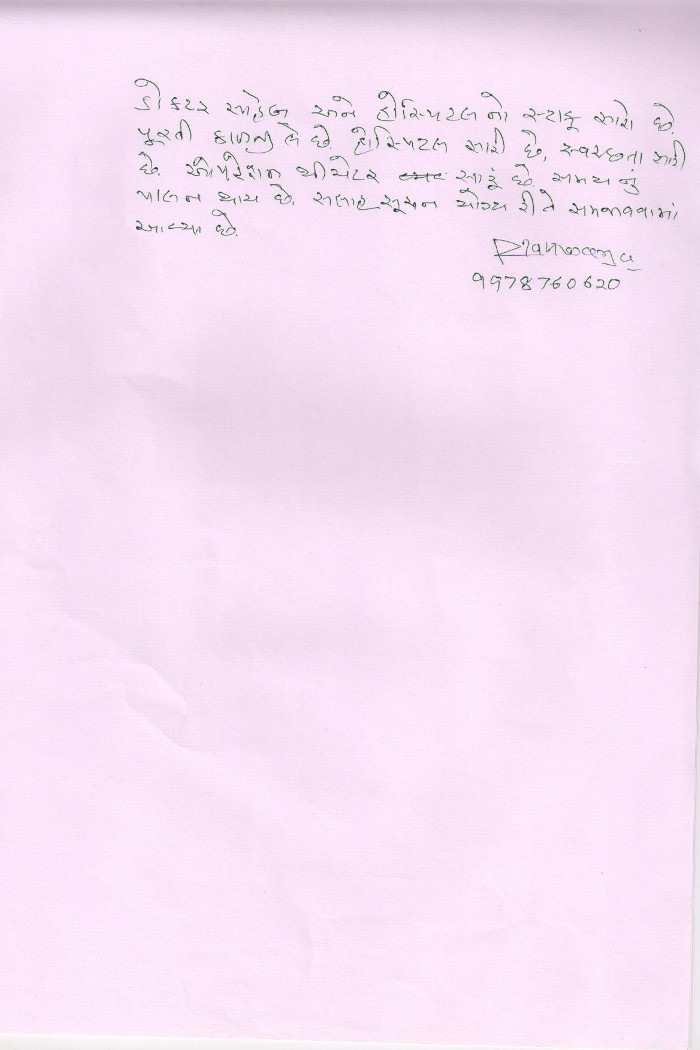 ડોકટર સાહેબ અને હોસ્પિટલનો સ્ટાફ સારો છે.
પૂરતી કાળજી લે છે હોસ્પિટલ સારી છે, સ્વચ્છતા સારી
છે. ઓપરેશન થીયેટર સારૂં છે. સમયનું
પાલન થાય છે. સલાહ સૂચન યોગ્ય રીતે સમજાવવામાં
આવ્યા છે.
9978760620